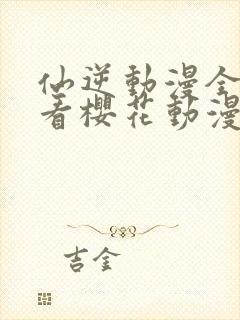 仙逆動漫全
看櫻花動漫
吉金